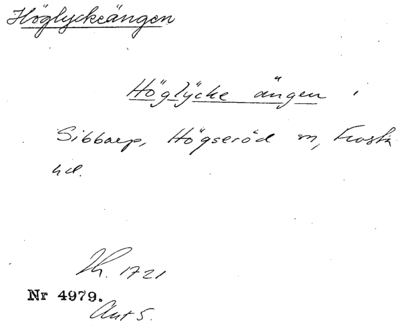 Höglyckeängen
Höglÿcke ängen i
Sibbarp, Högseröd sn, Frosta
hd.
Lh. 1721
Nr 4979.
Ant 5.